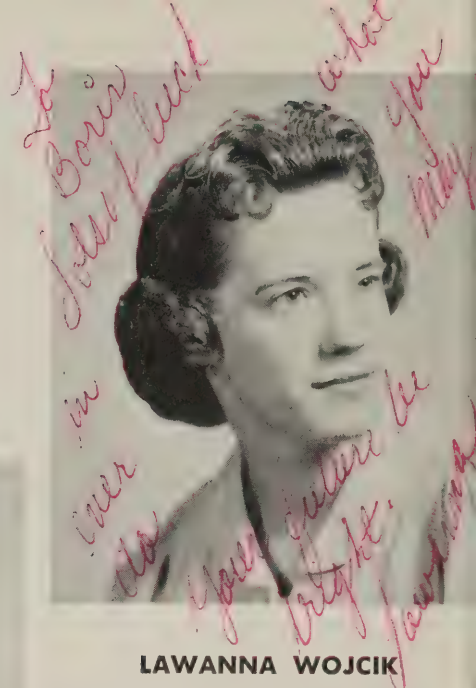 To
Boris
Lots of Luck
in what
ever you
do May
your future be
bright.
Lawanna
LAWANNA WOJCIK